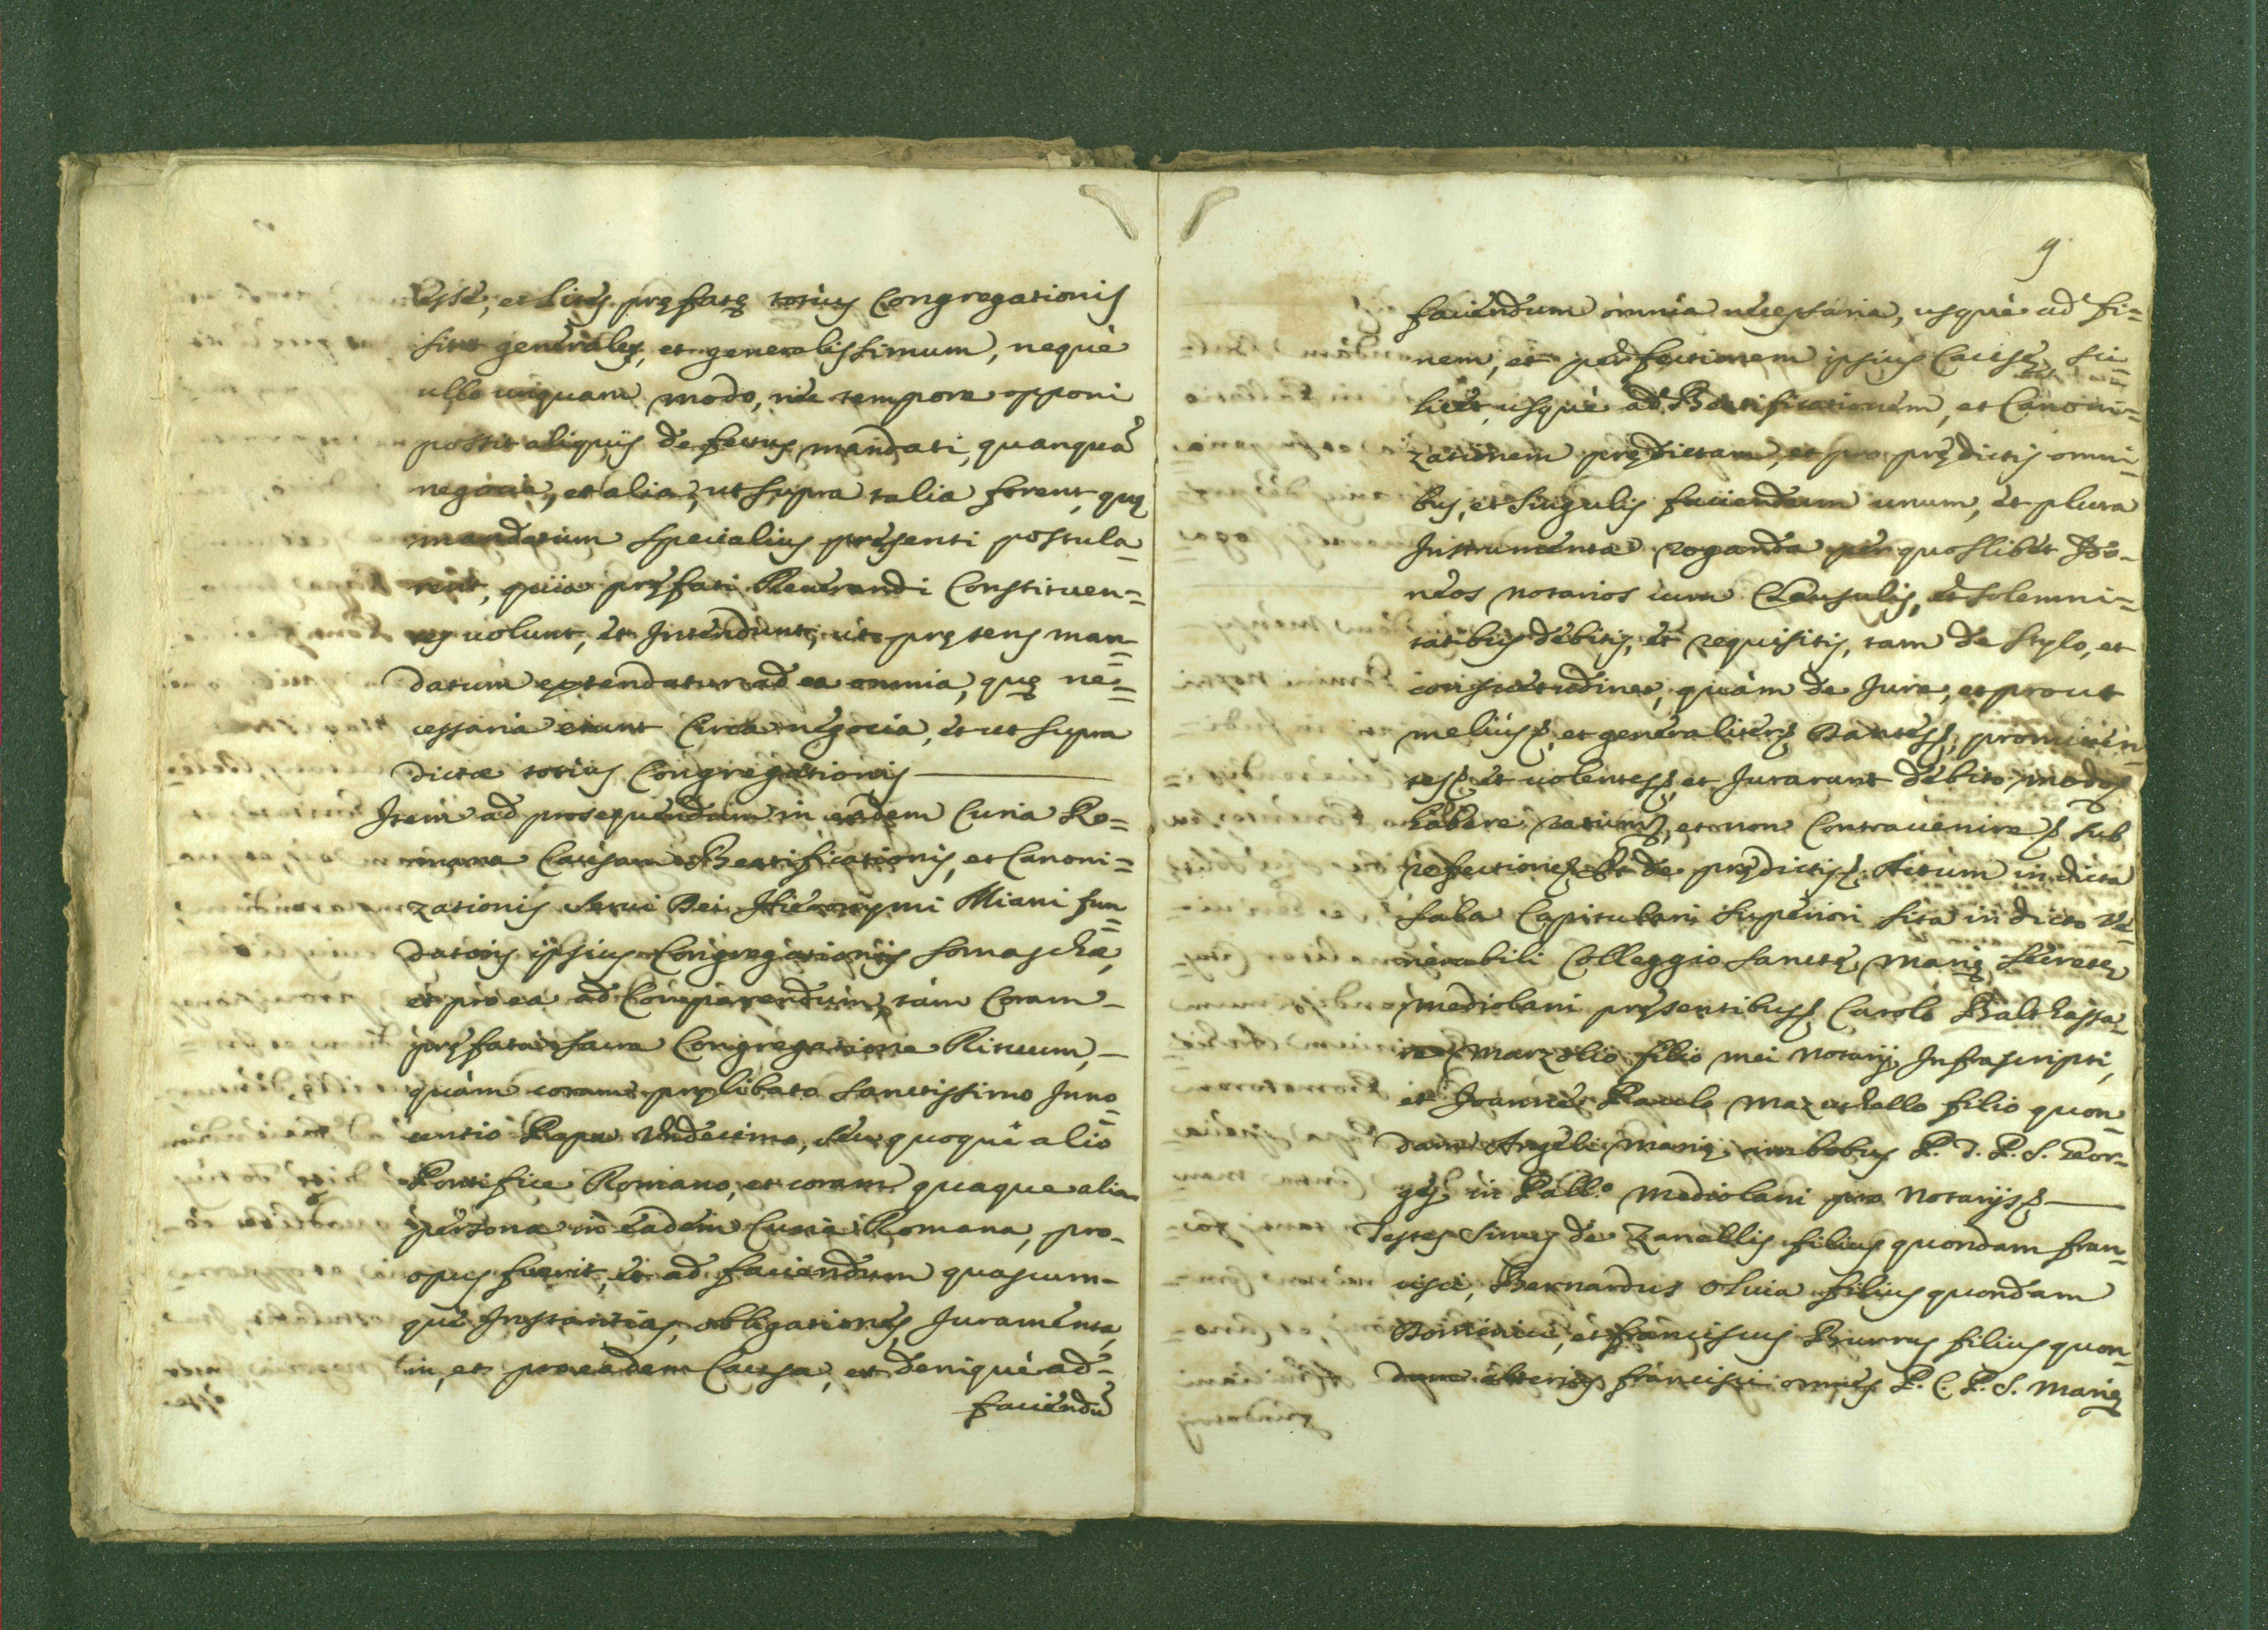 esse, et lites pręfatę totius Congregationis
sint generales, et generalissimum, neque
ullo unquam modo, nec tempore opponi
possit aliquis defectus mandati, quanquã
negocia, et alia, ut supra talia forent, quę
mandatum specialius pręsenti postula-
rent, quia pręfati Reuerandi Constituen=
tes uolunt, et Intendunt, ut pręsens man=
datum extendatur ad ea omnia, quę ne=
cessaria erunt Circa negocia, et ut supra
dictæ totius Congregationis
Item ad prosequendam in eadem Curia Ro=
mana Causam Beatificationis, et Canoni=
zationis Serui Dei Hieronymi Miani fun=
datoris ipsius Congregationis Somaschæ,
et pro ea ad Comparendum, tàm Coram
pręfata sacra Congregatione Rituum,
quàm coram pręlibato Sanctissimo Inno=
centio Papa Vndecimo, seu quoque alio
Pontifice Romano, et coram quaque alia
persona in eadem Curia Romana, pro-
opus fuerit, et ad faciendum quascum-
que Instantias, obligationes, Iuramenta,
in, et pro eadem Causa, et denique ad-
faciendũ
9
faciendum omnia necessaria, usque ad fi=
nem, et perfectionem ipsius Causę, sci=
licet usque ad Beatificationem, et Canoni=
zationem prędictam, et pro prędictis omni=
bus, et singulis faciendum unum, et plura
Instrumenta roganda per quoslibet Ido-
neos notarios cum Clausulis, et solemni=
tatibus debitis, et requisitis, tam de stylo, et
consuetudine, quàm de Iure, et prout
melius, et generaliter Dantes, promitten=
tes et uolentes, et Iurarunt debito modo
habere ratum, et non Contrauenire sub
refectione Et de prędictis Actum in dicta
Sala Capitulari Superiori sita in dicto Ve=
nerabili Colleggio Sanctę Marię Secretę
Mediolani pręsentibus Carolo Balthassa-
re Marzolio filio mei Notarij Infrascripti,
et Joanne Paulo Mazuchello filio quon=
dam Angeli Marię ambobus P. T. P. S. Geor-
gij in Pall.º Mediolani pro Notarijs
Testes Sinus de Zanellis filius quondam Fran=
cisci, Bernardus Oliua filius quondam
Dominici, et Franciscus Burrus filius quon=
dam alterius Francisci omnes P. C. P. S. Marię